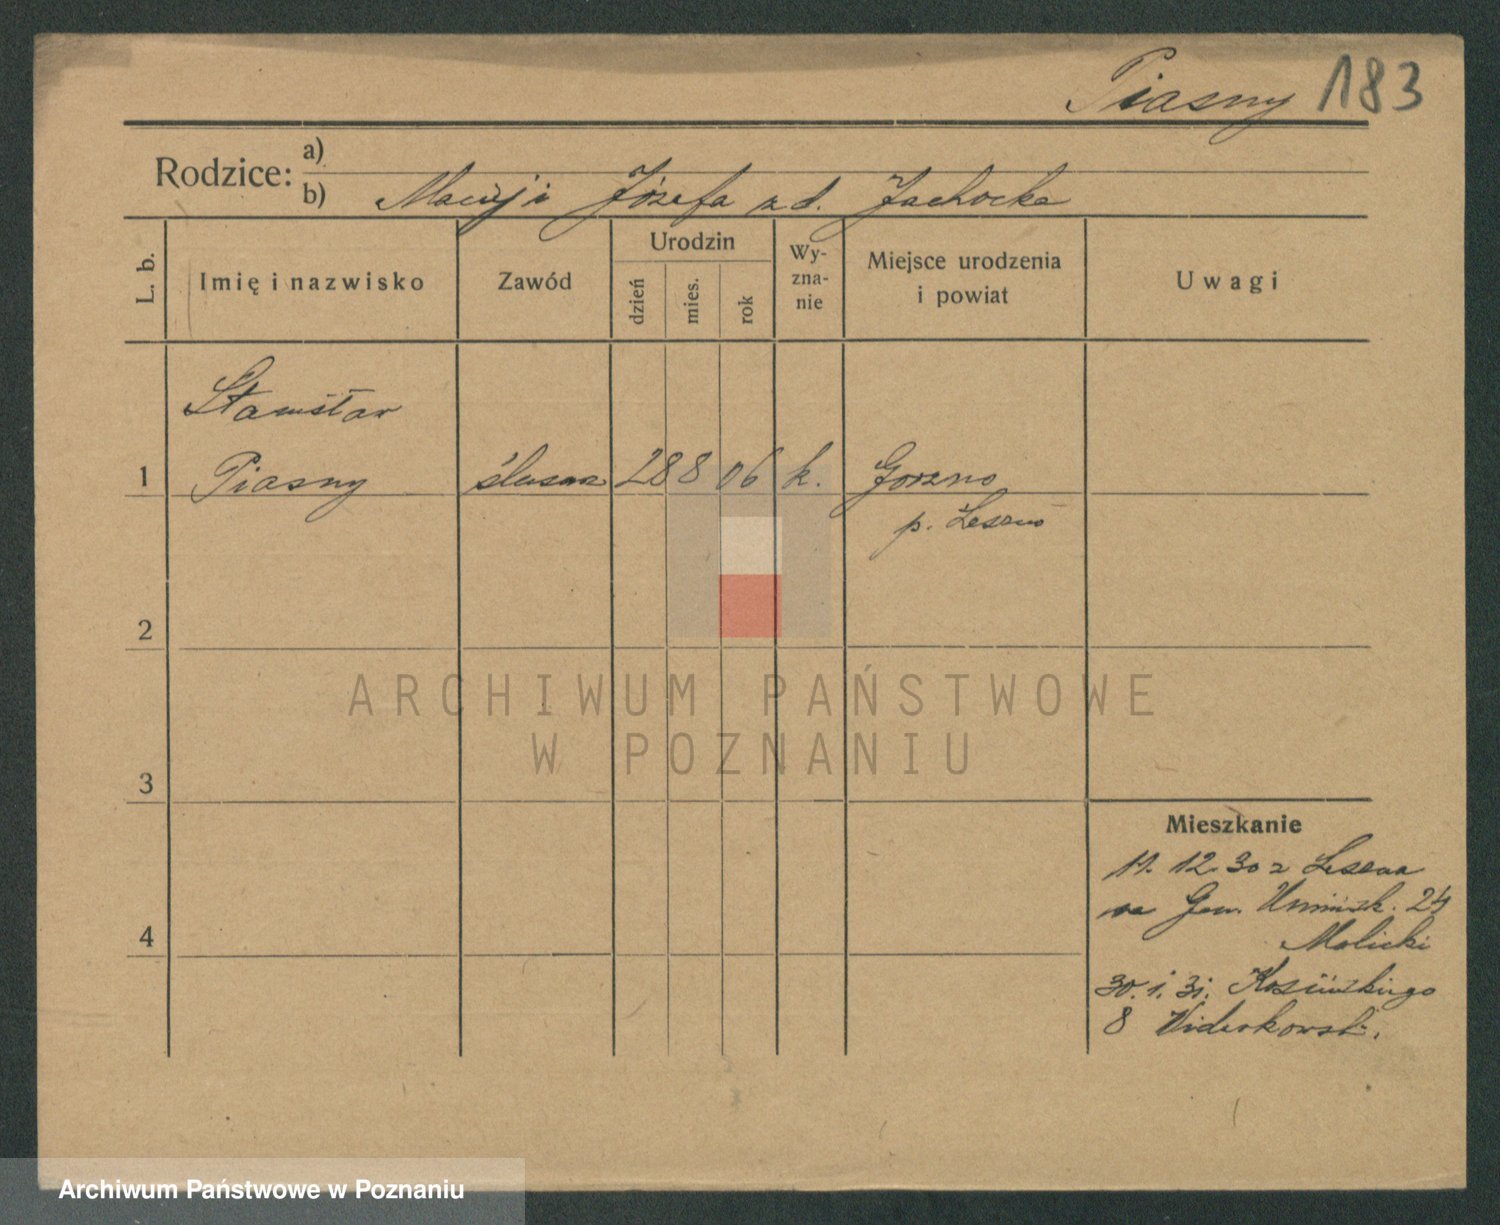 Piasny 183
Rodzice: a)
b) Maciej i Józefa z d. Jachocka
L. b.
Imię i nazwisko
Zawód
Urodzin
dzień
mies.
rok
Wy-
zna-
nie
Miejsce urodzenia
i powiat
Uwagi
Stanisław
1 Piasny ślusarz 28 8 06 k. Gorzno
p. Leszno
2
3
4
ARCHIWUM PAŃSTWOWE
W POZNANIU
Mieszkanie
11. 12. 30 z Leszna
na Gen. Umińsk. 24
Malicki
30. 1. 31. Kosińskiego
8
Archiwum Państwowe w Poznaniu